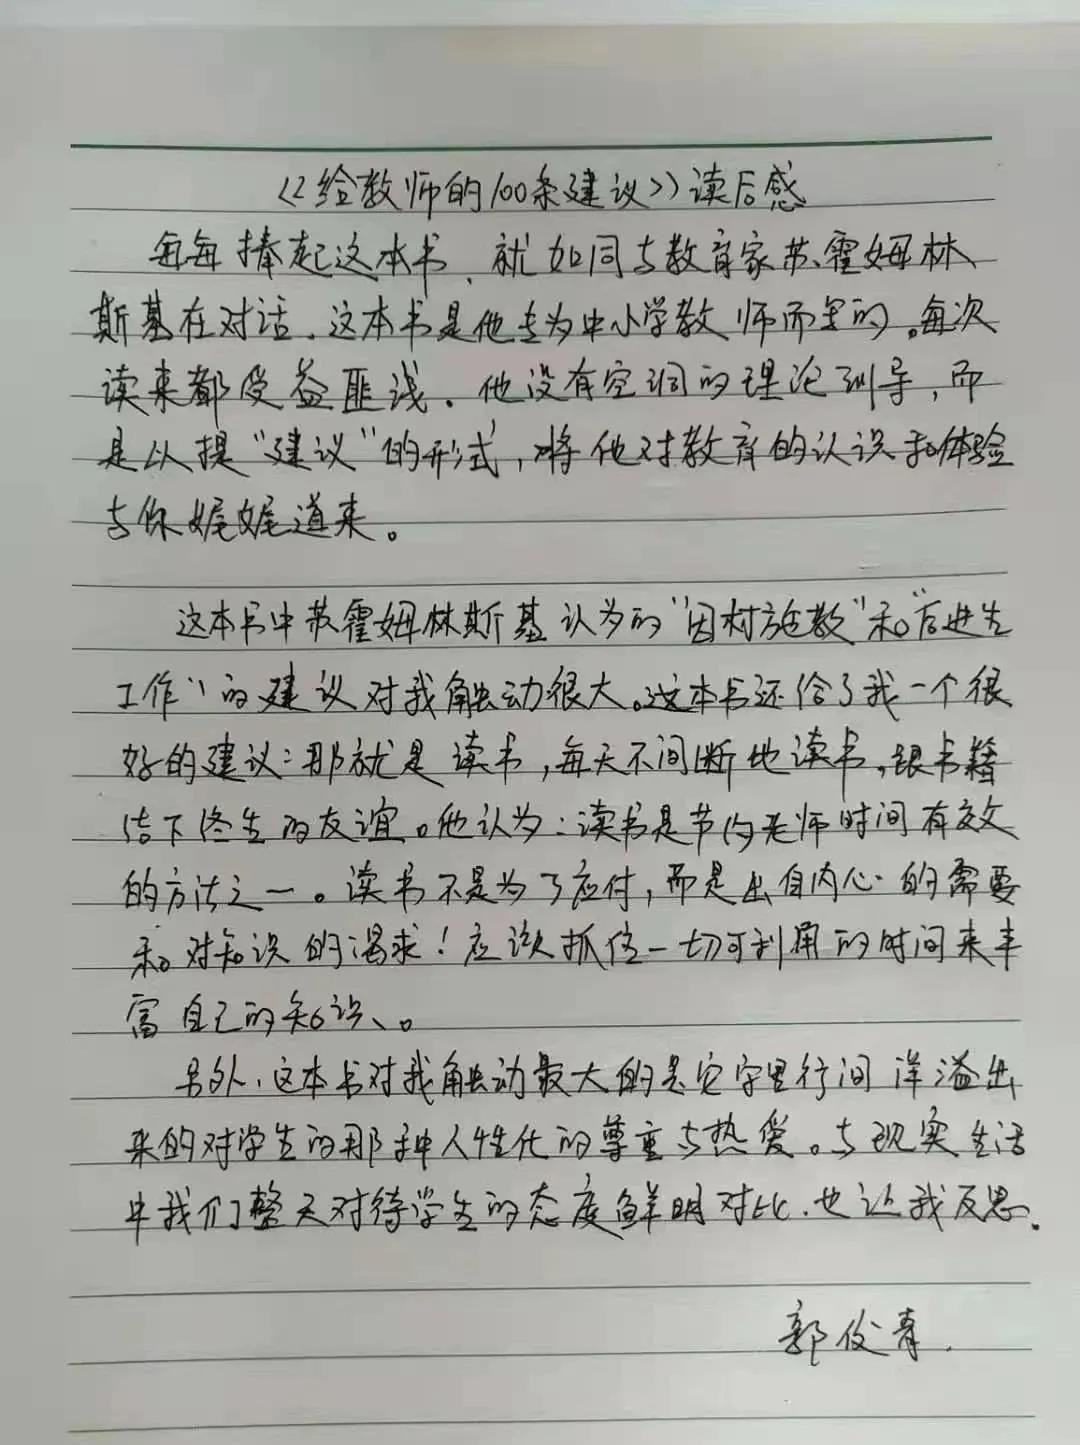 《给教师的100条建议》读后感
每每捧起这本书,就如同与教育家苏霍姆林
斯基在对话.这本书是他专为中小学教师而写的。每次
读来都受益匪浅。他没有空洞的理论训导,而
是以提“建议”的形式,将他对教育的认识和体验
与你娓娓道来。
这本书中苏霍姆林斯基认为的“因材施教”和“后进生
工作”的建议对我触动很大。这本书还给了我一个很
好的建议:那就是读书,每天不间断地读书,跟书籍
结下终生的友谊。他认为:读书是节约老师时间有效
的方法之一。读书不是为了应付,而是出自内心的需要
和对知识的渴求!应该抓住一切可利用的时间来丰
富自己的知识、。
另外,这本书对我触动最大的是它字里行间洋溢出
来的对学生的那种人性化的尊重与热爱。与现实生活
中我们整天对待学生的态度鲜明对比.也让我反思.
郭俊青.